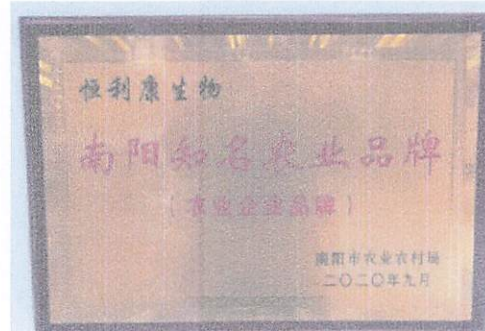 恒利康生物
南阳知名农业品牌
(农业企业品牌)
南阳市农业农村局
二〇二〇年九月